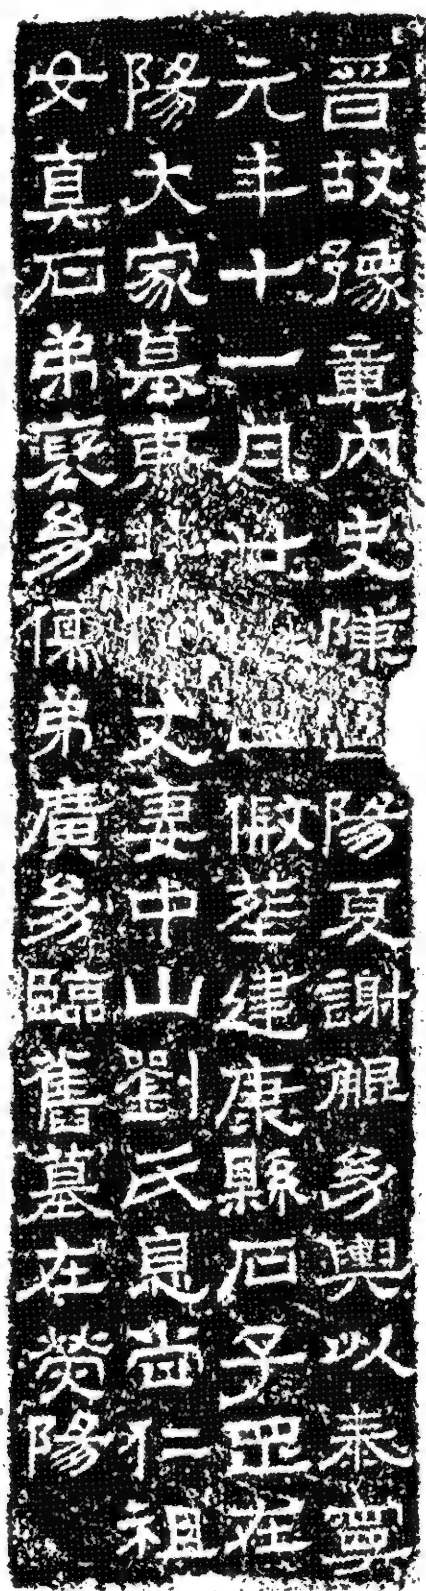 晉故豫章內史陳國陽夏謝鯤幼輿以泰寧
元年十一月廿亡假葬建康縣石子罡在
陽大家墓東北丈妻中山劉氏息尚仁祖
女真石弟裒幼儒弟廣幼臨舊墓在熒陽